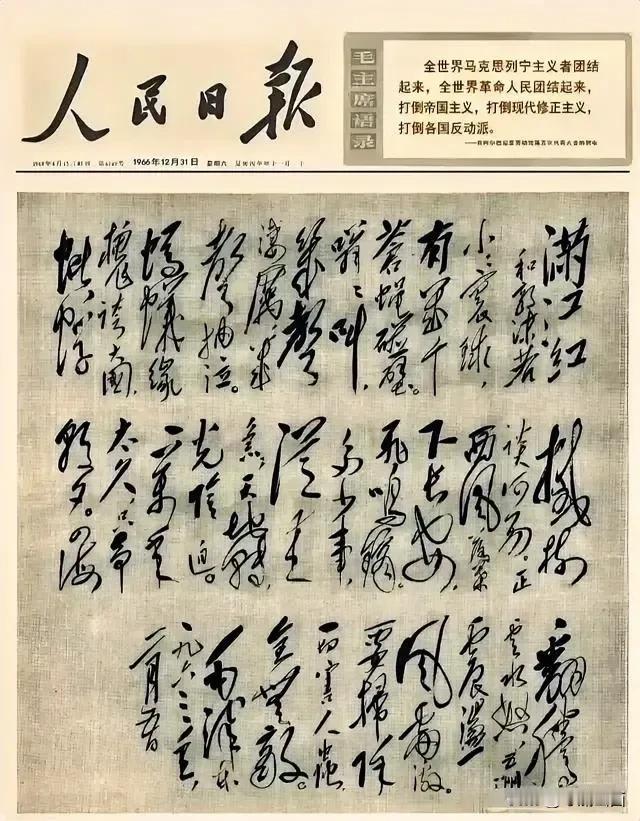 人民日报
毛主席语录
全世界马克思列宁主义者团结
起来，全世界革命人民团结起来，
打倒帝国主义，打倒现代修正主义，
打倒各国反动派。
1966年12月31日 星期六
满江红
和郭沫若
小小寰球，
有几个
苍蝇碰壁。
嗡嗡叫，
几声
凄厉，几
声抽泣。
蚂蚁缘
槐夸大国，
蚍蜉
撼树
谈何易。正
西风落叶
下长安，
飞鸣镝。
多少事，
从来
急；天地转，
光阴迫。
一万年
太久，只争
朝夕。四海
翻腾
云水怒，五洲
震荡
风雷激。
要扫除
一切害人虫，
全无敌。
毛泽东
一九六三年
二月五日